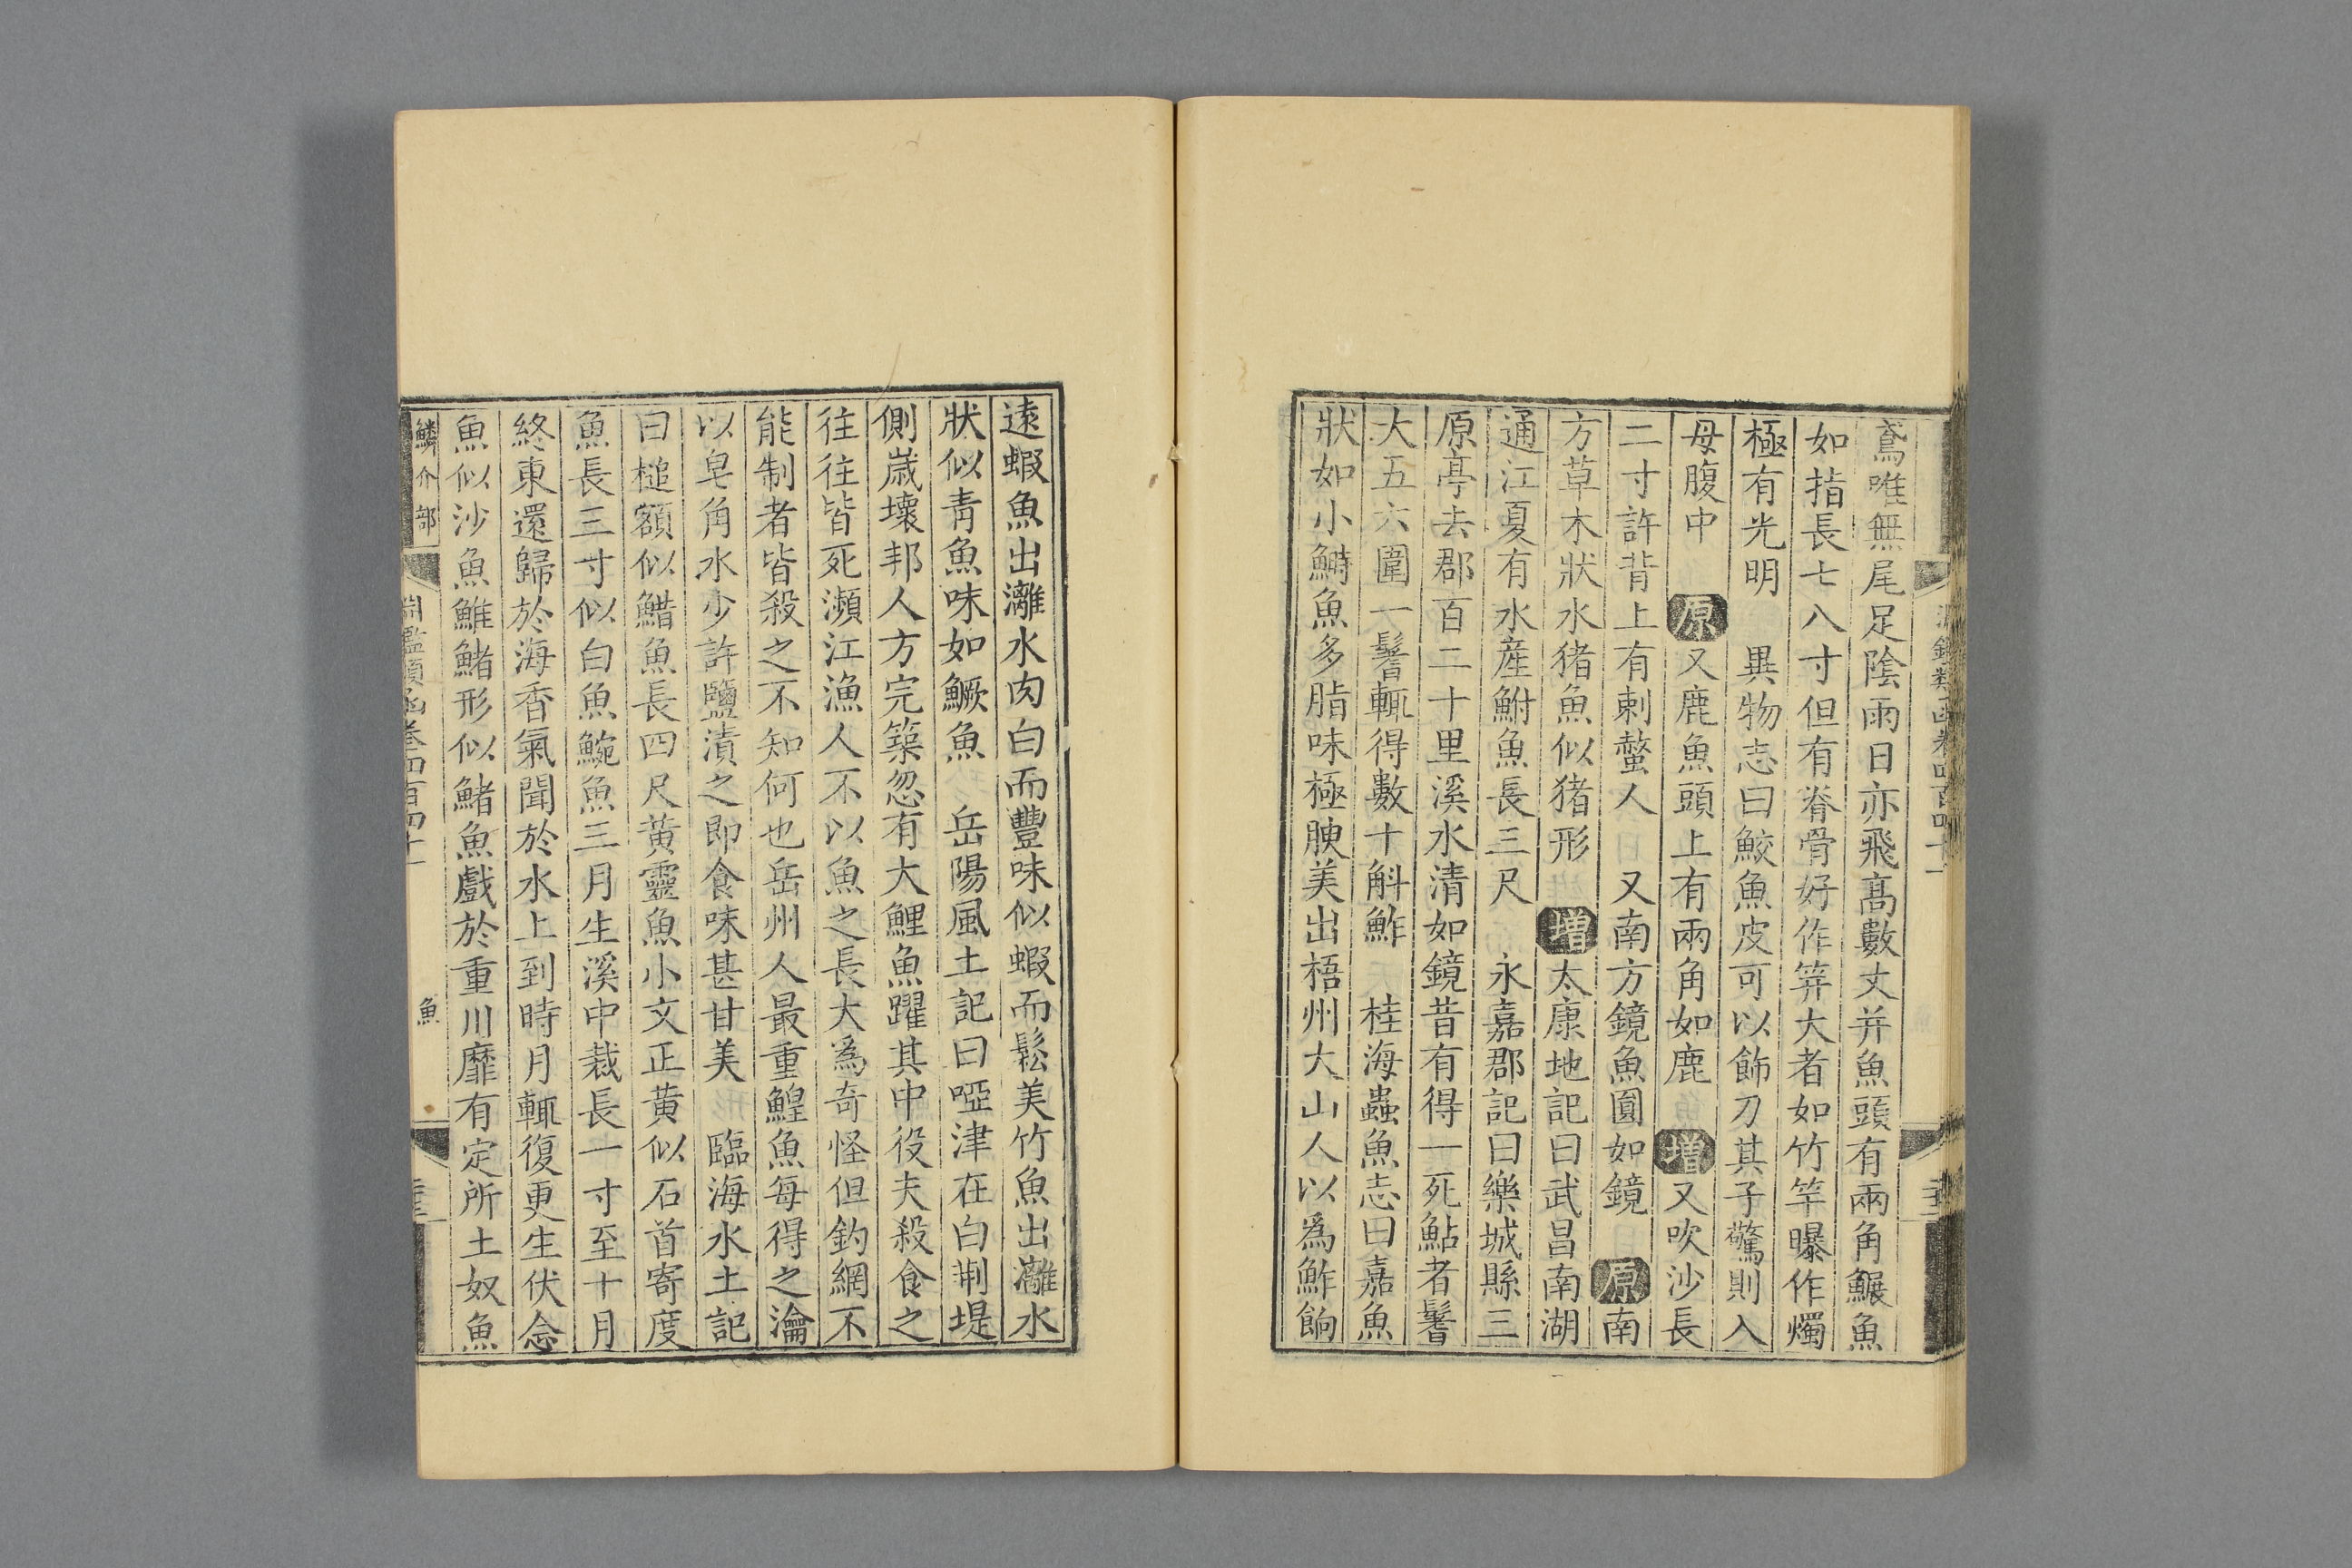 鳶唯無尾足陰雨日亦飛髙數丈并魚頭有兩角鯤魚
如指長七八寸但有脊骨好作筓大者如竹竿曝作燭
極有光明　異物志曰鮫魚皮可以飾刀其子驚則入
母腹中　原又鹿魚頭上有兩角如鹿　增又吹沙長
二寸許背上有刺螫人　又南方鏡魚圓如鏡　原南
方草木狀水猪魚似猪形　增太康地記曰武昌南湖
通江夏有水産鮒魚長三尺　永嘉郡記曰樂城縣三
原亭去郡百二十里溪水清如鏡昔有得一死鮎者鬐
大五六圍一鬐輒得數十斛鮓　桂海蟲魚志曰嘉魚
狀如小鰣魚多脂味極腴美出梧州大山人以爲鮓餉
遠蝦魚出灕水肉白而豐味似蝦而鬆美竹魚出灕水
狀似青魚味如鱖魚　岳陽風土記曰啞津在白荆堤
側歲壞邦人方完築忽有大鯉魚躍其中役夫殺食之
往往皆死瀕江漁人不以魚之長大爲奇怪但釣網不
能制者皆殺之不知何也岳州人最重鰉魚每得之瀹
以皂角水少許鹽漬之即食味甚甘美　臨海水土記
曰槌額似鯌魚長四尺黄靈魚小文正黄似石首寄度
魚長三寸似白魚鯇魚三月生溪中裁長一寸至十月
終東還歸於海香氣聞於水上到時月輒復更生伏念
魚似沙魚鯡鯺形似鯺魚戲於重川靡有定所土奴魚
鱗介部
淵鑑類函卷四百四十一
魚